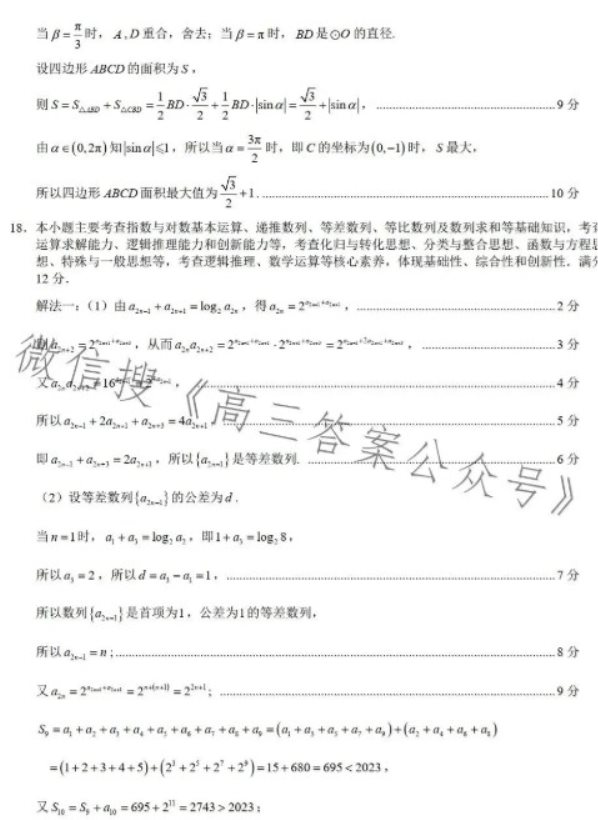 当 β = π/3 时，A, D 重合，舍去；当 β = π 时，BD 是⊙O 的直径.
设四边形 ABCD 的面积为 S，
则 S = S△ABD + S△CBD = 1/2 BD · √3/2 + 1/2 BD · |sin α| = √3/2 + |sin α|， ……9 分
由 α ∈ (0, 2π) 知 |sin α| ⩽ 1，所以当 α = 3π/2 时，即 C 的坐标为 (0, −1) 时，S 最大，
所以四边形 ABCD 面积最大值为 √3/2 + 1. ……10 分
18．本小题主要考查指数与对数基本运算、递推数列、等差数列、等比数列及数列求和等基础知识，考
运算求解能力、逻辑推理能力和创新能力等，考查化归与转化思想、分类与整合思想、函数与方程
想、特殊与一般思想等，考查逻辑推理、数学运算等核心素养，体现基础性、综合性和创新性．满
12 分．
解法一：（1）由 a_{2n−1} + a_{2n+1} = log₂ a_{2n}，得 a_{2n} = 2^{a_{2n−1}+a_{2n+1}}， ……2 分
a_{2n+2} = 2^{a_{2n+1}+a_{2n+3}}，从而 a_{2n}a_{2n+2} = 2^{a_{2n−1}+a_{2n+1}} · 2^{a_{2n+1}+a_{2n+3}} = 2^{a_{2n−1}+2a_{2n+1}+a_{2n+3}}， ……3 分
又 a_{2n}a_{2n+2} = 16^{a_{2n+1}} = 2^{4a_{2n+1}}， ……4 分
所以 a_{2n−1} + 2a_{2n+1} + a_{2n+3} = 4a_{2n+1}， ……5 分
即 a_{2n−1} + a_{2n+3} = 2a_{2n+1}，所以 {a_{2n−1}} 是等差数列. ……6 分
（2）设等差数列 {a_{2n−1}} 的公差为 d．
当 n = 1 时，a₁ + a₃ = log₂ a₂，即 1 + a₃ = log₂ 8，
所以 a₃ = 2，所以 d = a₃ − a₁ = 1， ……7 分
所以数列 {a_{2n−1}} 是首项为 1，公差为 1 的等差数列，
所以 a_{2n−1} = n； ……8 分
又 a_{2n} = 2^{a_{2n−1}+a_{2n+1}} = 2^{n+(n+1)} = 2^{2n+1}； ……9 分
S₉ = a₁ + a₂ + a₃ + a₄ + a₅ + a₆ + a₇ + a₈ + a₉ = (a₁ + a₃ + a₅ + a₇ + a₉) + (a₂ + a₄ + a₆ + a₈)
= (1 + 2 + 3 + 4 + 5) + (2³ + 2⁵ + 2⁷ + 2⁹) = 15 + 680 = 695 < 2023，
又 S₁₀ = S₉ + a₁₀ = 695 + 2¹¹ = 2743 > 2023；
微信搜《高三答案公众号》